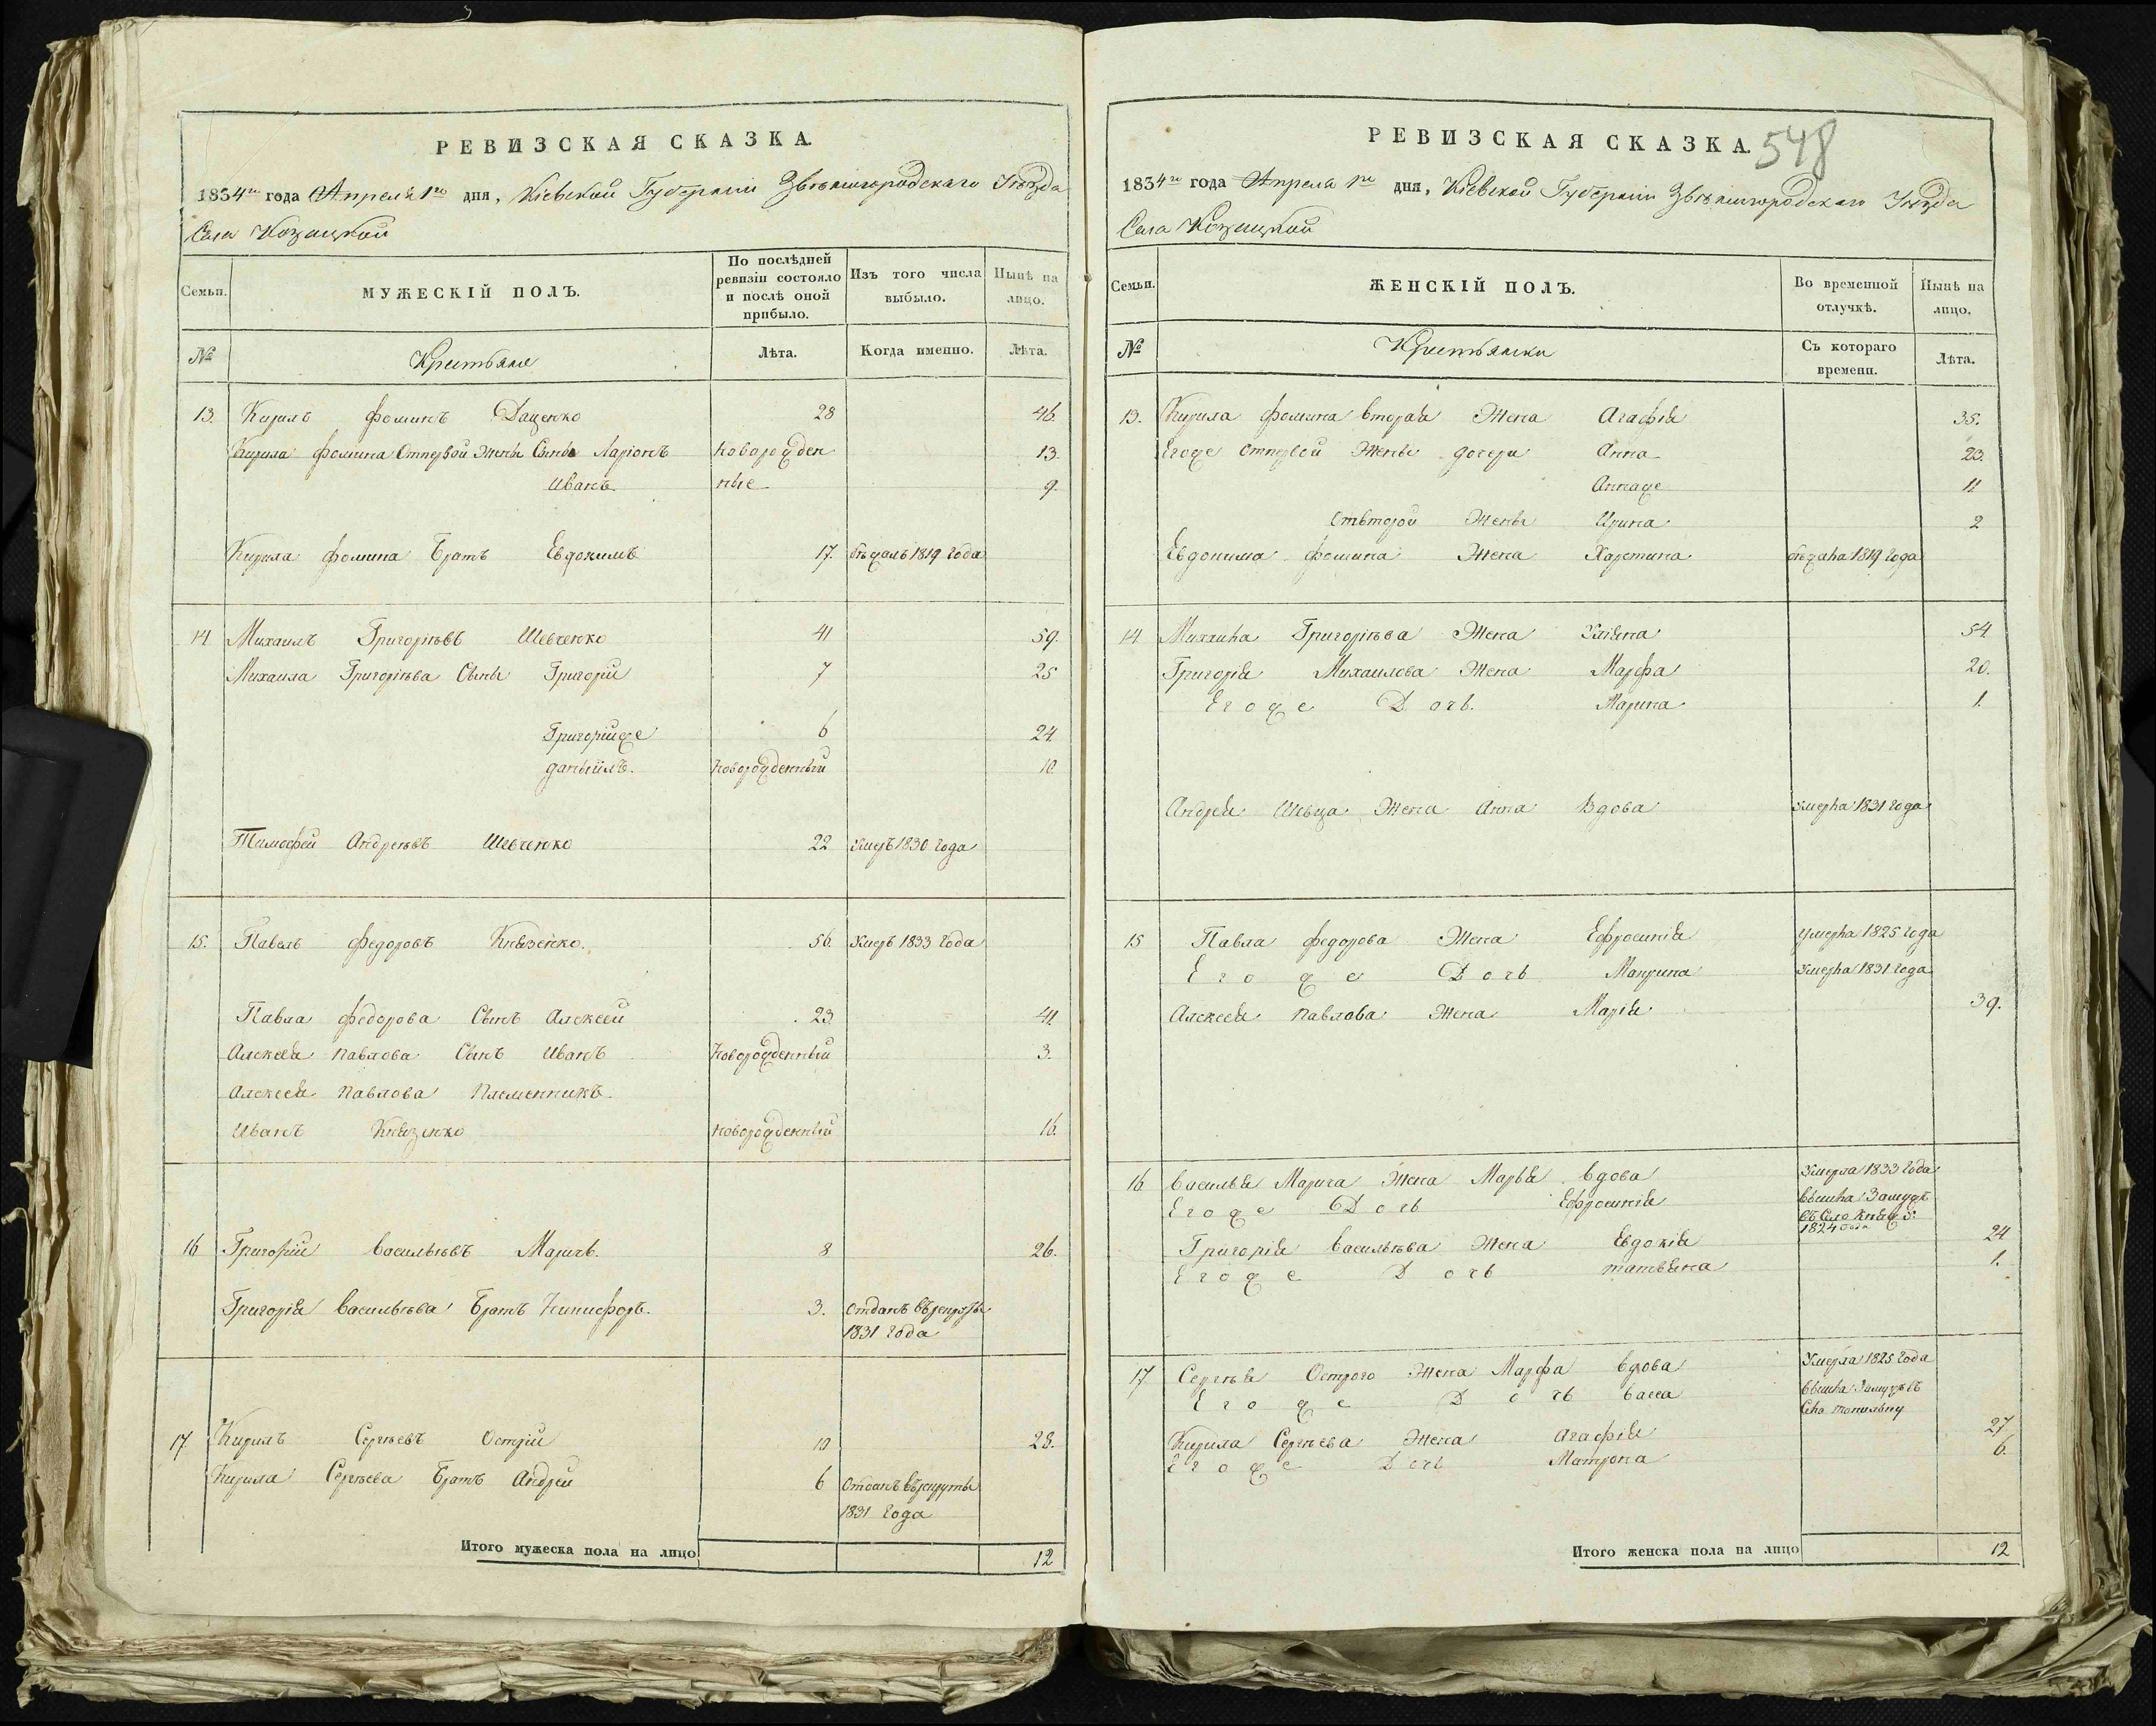 РЕВИЗСКАЯ СКАЗКА.
1834го года Апреля 1го дня, Кіевской Губерніи Звѣнигородскаго Уѣзда
Села Козацкой
Семьи.
МУЖЕСКІЙ ПОЛЪ.
По послѣдней ревизіи состояло и послѣ оной прибыло.
Изъ того числа выбыло.
Нынѣ на лицо.
№
Крестьяне
Лѣта.
Когда именно.
Лѣта.
13. Кирилъ Фоминъ Даценко 28 46.
Кирила Фомина Отпервой Жены Сыны Ларіонъ новорожден 13.
Иванъ ные 9.
Кирила Фомина Братъ Евдокимъ 17. бѣжалъ 1819 года
14 Михаилъ Григорьевъ Шевченко 41 59.
Михаила Григорьева Сыны Григорій 7 25
Григорійже 6 24.
Даныилъ. новорожденный 10.
Тимофей Андреевъ Шевченко 22 Умеръ 1830 года
15. Павелъ Федоровъ Князенко. 56. Умеръ 1833 года
Павла Федорова Сынъ Алексей 23. 41.
Алексея Павлова Сынъ Иванъ новорожденный 3.
Алексея Павлова Племенникъ.
Иванъ Князенко новорожденный 16.
16 Григорій Васильевъ Маричъ. 8 26.
Григорія Васильева Братъ Никифоръ. 3. Отданъ въ рекруты
1831 года
17. Кирилъ Сергѣевъ Острій 10 28.
Кирила Сергѣева Братъ Андрей 6 Отданъ въ рекруты
1831 года
Итого мужеска пола на лицо 12
РЕВИЗСКАЯ СКАЗКА. 548
1834го года Апреля 1го дня, Кіевской Губерніи Звѣнигородскаго Уѣзда
Села Козацкой
Семьи.
ЖЕНСКІЙ ПОЛЪ.
Во временной отлучкѣ.
Нынѣ на лицо.
№
Крестьянки
Съ котораго времени.
Лѣта.
13. Кирила Фомина вторая Жена Агафія 35.
Егоже Отпервой Жены дочери Анна 23.
Аннаже 11
Отвторой Жены Ирина 2
Евдокима Фомина Жена Харитина бѣжала 1819 года
14 Михаила Григорьева Жена Уліяна 54.
Григорія Михаилова Жена Марфа 20.
Егоже Дочь. Марина 1.
Андрея Шевца Жена Анна Вдова умерла 1831 года
15 Павла Федорова Жена Ефросинія умерла 1825 года
Егоже Дочь Макрина умерла 1831 года
Алексея Павлова Жена Марія 39.
16 Василія Марича Жена Марья вдова Умерла 1833 года
Егоже Дочь Ефросинія вышла Замужъ
въ Село
1824 года
Григорія Васильева Жена Евдокія 24
Егоже Дочь татьяна 1.
17 Сергѣя Острого Жена Марфа вдова Умерла 1825 года
Егоже Дочь васса вышла Замужъ въ
Села топильну
Кирила Сергѣева Жена Агафія 27
Егоже Дочь Матрона 6.
Итого женска пола на лицо 12